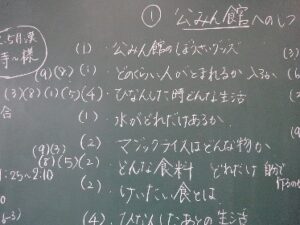 ① 公みん館へのしつ
(1) 公みん館のしょうさいグッズ
(9)(8) どのくらい人がとまれるか 入るか
(3)(8)(1)(5)(4) ひなんした時どんな生活
(1) 水がどれだけあるか
(9)(3)(2) マジックライスはどんな物か
(8)(5)(2) どんな食料 どれだけ
(2) けいたい食とは
(4) ひなんしたあとの生活
1:25~2:10